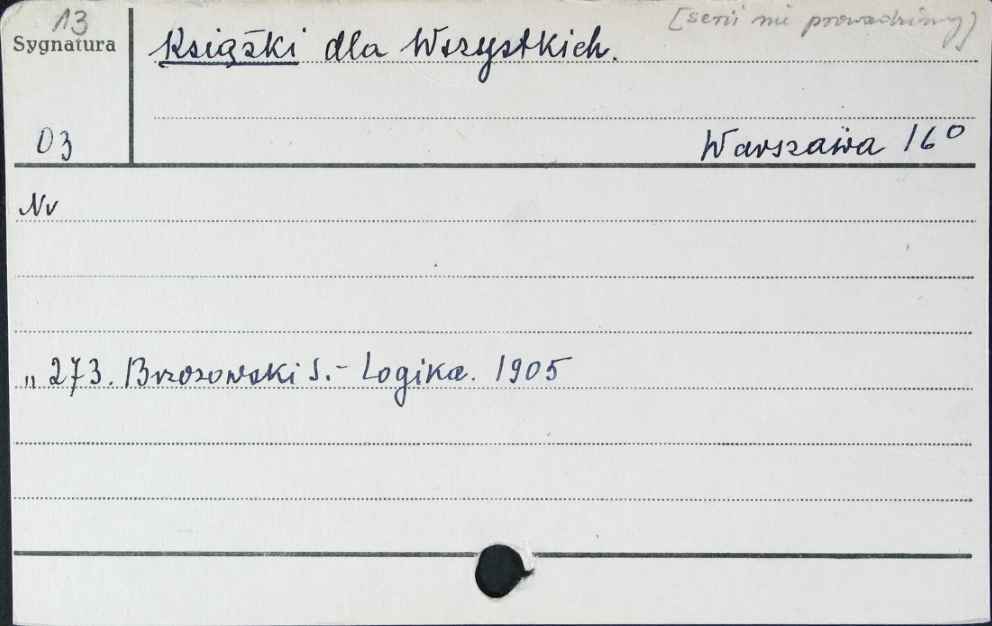 13 [serii nie prowadzimy]
Sygnatura Książki dla Wszystkich.
03 Warszawa 16°
Nr
„ 273. Brzozowski S. - Logika. 1905